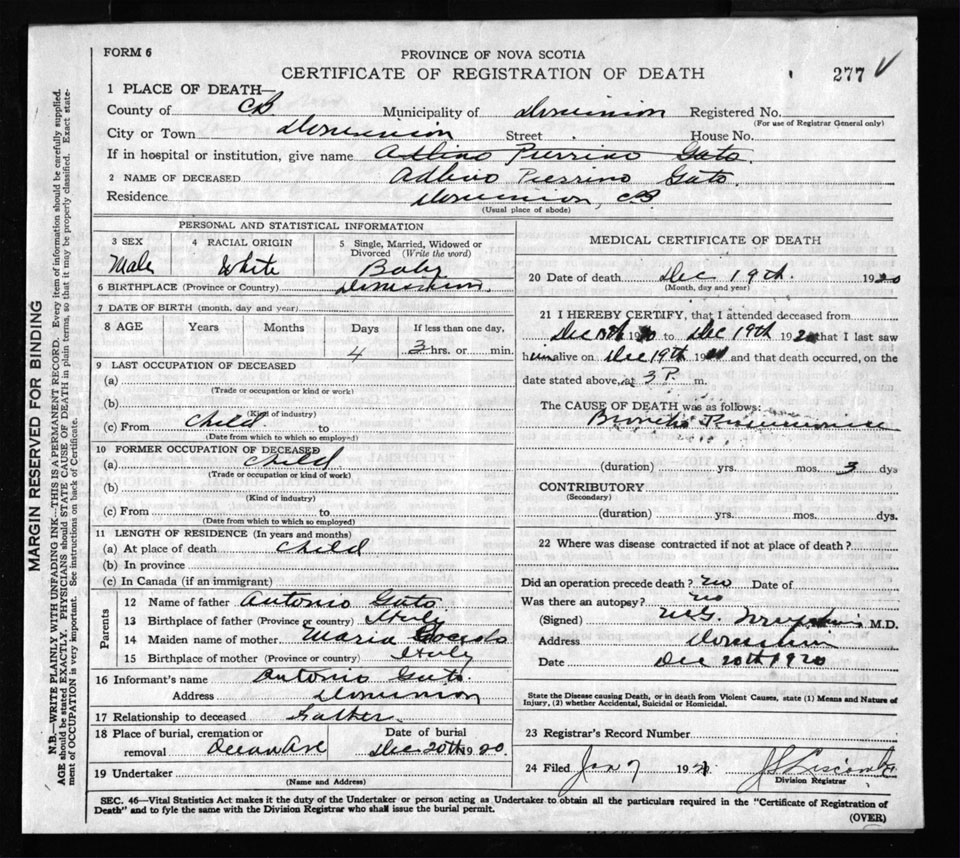 FORM 6
PROVINCE OF NOVA SCOTIA
CERTIFICATE OF REGISTRATION OF DEATH
277 V
1 PLACE OF DEATH—
County of CB Municipality of Dominion Registered No.
(For use of Registrar General only)
City or Town Dominion Street House No.
If in hospital or institution, give name Albino Pierrino Gato
2 NAME OF DECEASED Albino Pierrino Gato
Residence Dominion, CB
(Usual place of abode)
PERSONAL AND STATISTICAL INFORMATION
3 SEX 4 RACIAL ORIGIN 5 Single, Married, Widowed or Divorced (Write the word)
Male White Baby
6 BIRTHPLACE (Province or Country) Dominion
7 DATE OF BIRTH (month, day and year)
8 AGE Years Months Days If less than one day,
4 3 hrs. or min.
9 LAST OCCUPATION OF DECEASED
(a)
(Trade or occupation or kind or work)
(b)
(Kind of industry)
(c) From Child to
(Date from which to which so employed)
10 FORMER OCCUPATION OF DECEASED
(a) Child
(Trade or occupation or kind of work)
(b)
(Kind of industry)
(c) From to
(Date from which to which so employed)
11 LENGTH OF RESIDENCE (In years and months)
(a) At place of death Child
(b) In province
(c) In Canada (if an immigrant)
Parents
12 Name of father Antonio Gato
13 Birthplace of father (Province or country) Italy
14 Maiden name of mother Maria
15 Birthplace of mother (Province or country) Italy
16 Informant's name Antonio Gato
Address Dominion
17 Relationship to deceased Father
18 Place of burial, cremation or removal Ocean Ave Date of burial Dec 20th 1920
19 Undertaker
(Name and Address)
MEDICAL CERTIFICATE OF DEATH
20 Date of death Dec 19th. 1920
(Month, day and year)
21 I HEREBY CERTIFY, that I attended deceased from
Dec 1920 to Dec 19th 1920 that I last saw
him alive on Dec 19th 1920 and that death occurred, on the
date stated above, at 3 P. m.
The CAUSE OF DEATH was as follows:
Broncho Pneumonia
(duration) yrs. mos. 3 dys
CONTRIBUTORY
(Secondary)
(duration) yrs. mos. dys.
22 Where was disease contracted if not at place of death?
Did an operation precede death? no Date of
Was there an autopsy? no
(Signed) M.D.
Address Dominion
Date Dec 20th 1920
State the Disease causing Death, or in death from Violent Causes, state (1) Means and Nature of
Injury, (2) whether Accidental, Suicidal or Homicidal.
23 Registrar's Record Number
24 Filed Jan 7 1921
Division Registrar
SEC. 46—Vital Statistics Act makes it the duty of the Undertaker or person acting as Undertaker to obtain all the particulars required in the "Certificate of Registration of
Death" and to fyle the same with the Division Registrar who shall issue the burial permit.
(OVER)
MARGIN RESERVED FOR BINDING
N.B.—WRITE PLAINLY WITH UNFADING INK—THIS IS A PERMANENT RECORD. Every item of information should be carefully supplied.
AGE should be stated EXACTLY. PHYSICIANS should STATE CAUSE OF DEATH in plain terms, so that it may be properly classified. Exact state-
ment of OCCUPATION is very important. See instructions on back of Certificate.